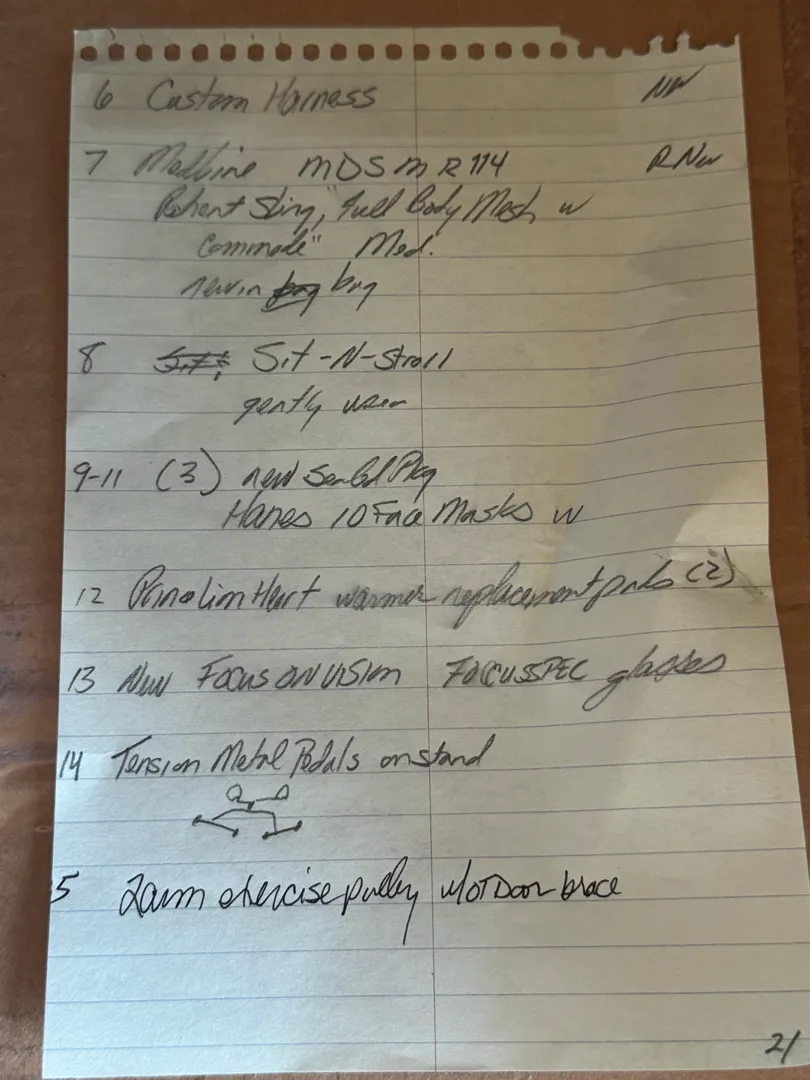 6 Custom Harness NW
7 Medline MDSMR114 RNW
Patient Sling, "Full Body Mesh w
Commode" Med.
new in bag
8 Sit-N-Stroll
gently used
9-11 (3) new Sealed Pkg
Hanes 10 Face Masks w
12 Heart warmer replacement pads (2)
13 New FOCUS ON VISION FOCUSSPEC glasses
14 Tension Metal Pedals on stand
5 2 arm exercise pulley door brace
21